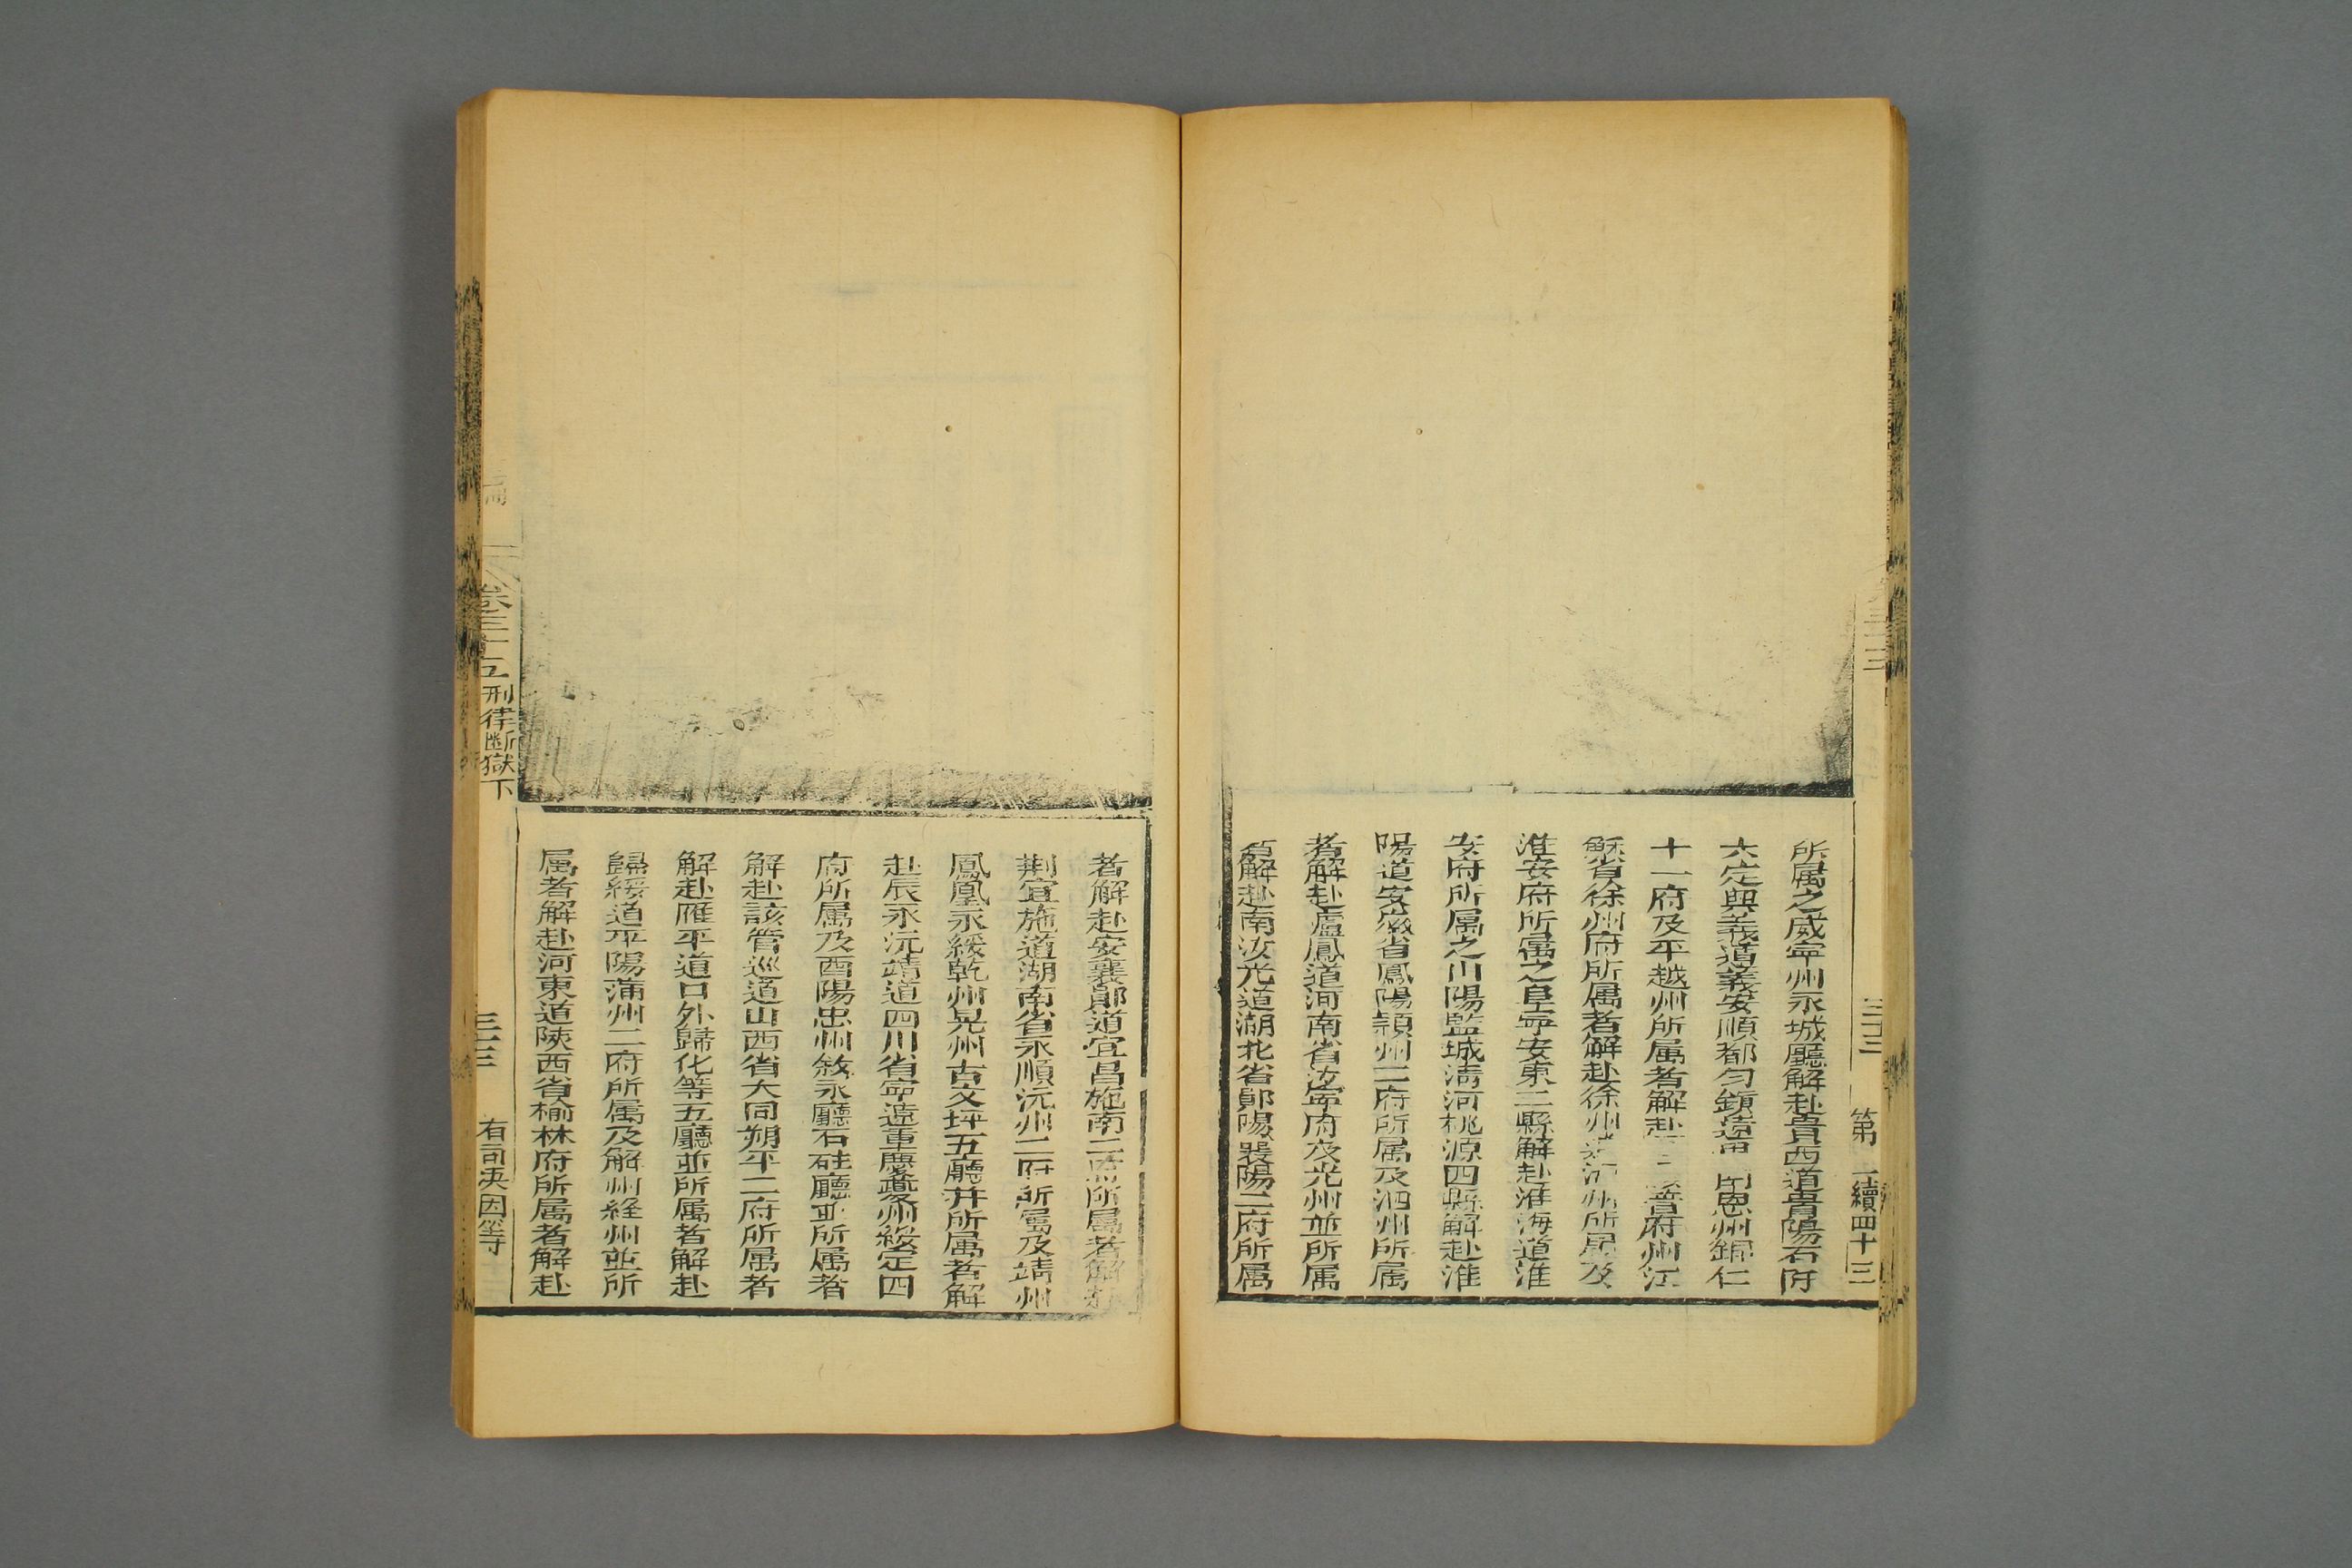 三十三 第 續四十三
所属之威寧州永城廳解赴貴西道貴陽石阡
大定興義遵義安順都勻鎮遠 思州銅仁
十一府及平越州所属者解赴 府州江
蘇省徐州府所属者解赴徐州 所属及
淮安府所属之阜寧安東二縣解赴淮海道淮
安府所属之山陽監城清河桃源四縣解赴淮
陽道安徽省鳳陽頴州二府所属及泗州所属
者解赴廬鳳道河南省汝寧府及光州並所属
者解赴南汝光道湖北省鄖陽襄陽二府所属
者解赴安襄鄖道宜昌施南二府所属者解赴
荆宜施道湖南省永順沅州二府所属及靖州
鳳凰永綏乾州晃州古丈坪五廳并所属者解
赴辰永沅靖道四川省寧遠重慶夔州綏定四
府所属及酉陽忠州敘永廳石砫廳並所属者
解赴該管巡道山西省大同朔平二府所属者
解赴雁平道口外歸化等五廳並所属者解赴
歸綏道平陽蒲州二府所属及解州絳州並所
属者解赴河東道陝西省榆林府所属者解赴
卷三十五 刑律斷獄下 三十三 有司決囚等